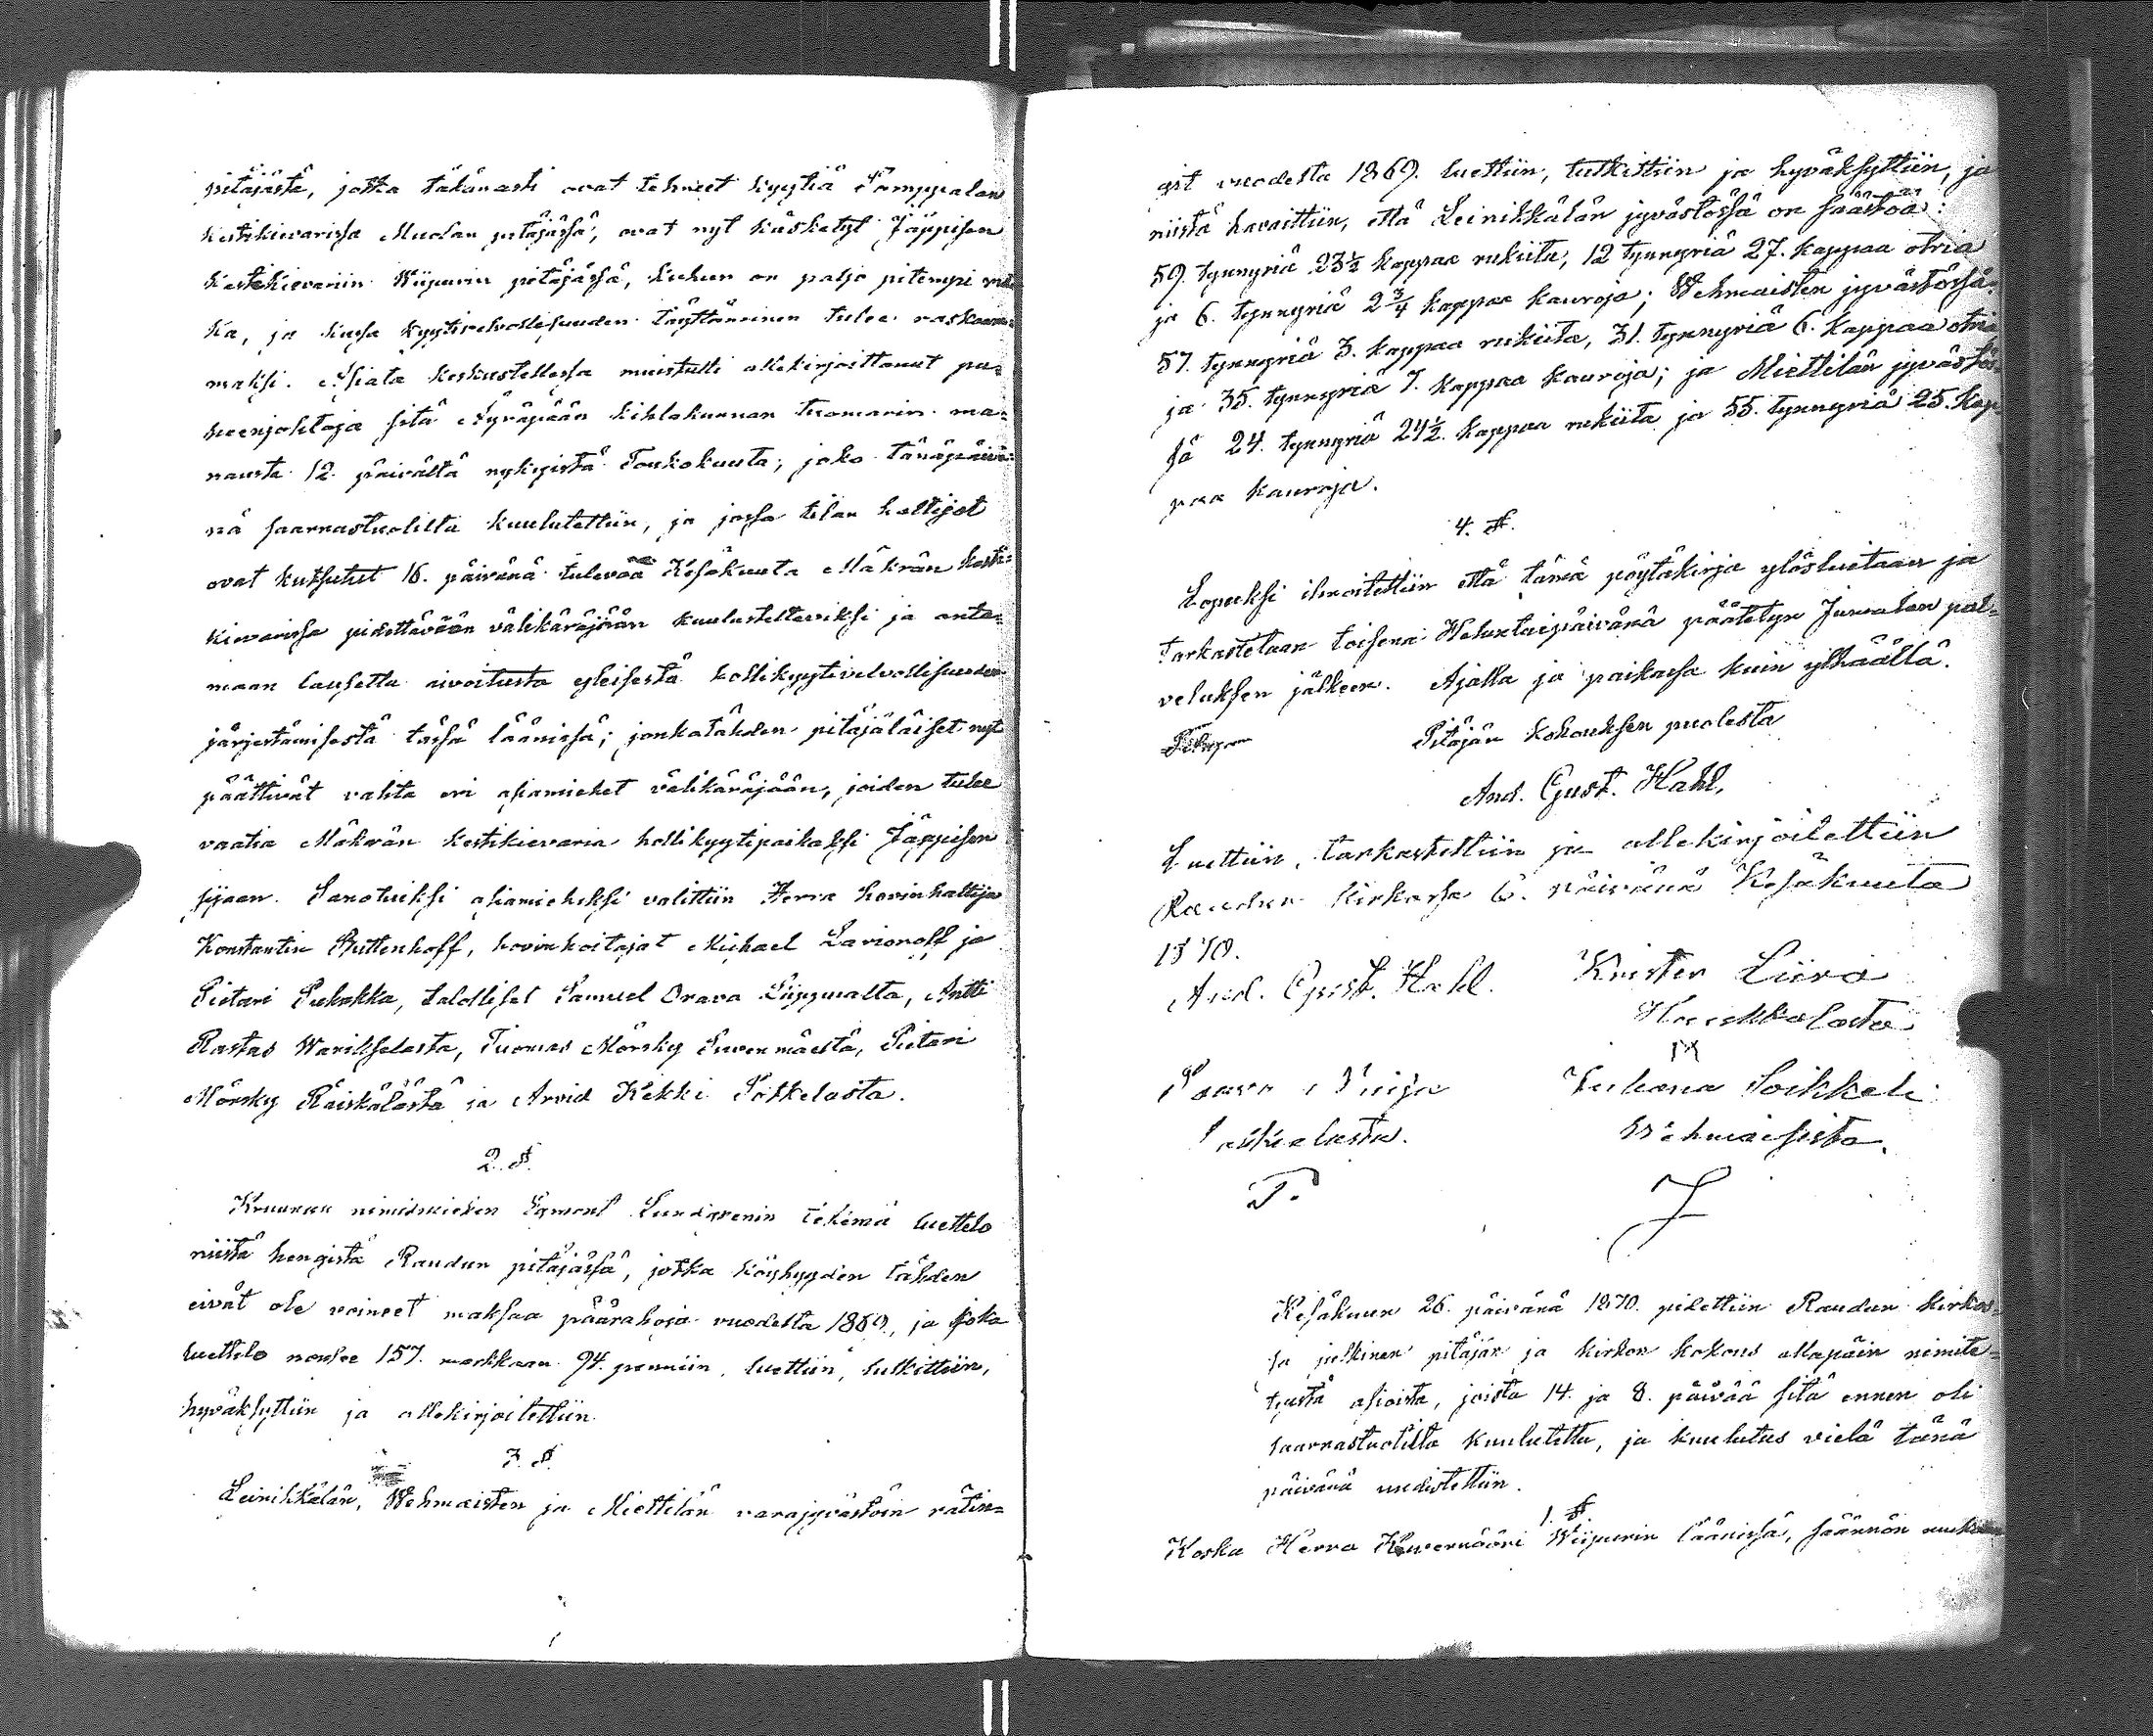 pitäjästä, jotka täkänasti ovat tehneet kyytiä Pömppälän
kestikievarissa Muolan pitäjässä, ovat nyt käsketyt Jäppisen
kestikievariin Wiipurin pitäjässä, kuhun on paljo pitempi mat
ka, ja kussa kyytivelvollisuuden täyttäminen tulee raskaam-
maksi. Asiata keskustellessa muistutti allekirjoittanut pu-
heenjohtaja sitä Äyräpään kihlakunnan tuomarin ma-
nausta 12. päivältä nykyistä Toukokuuta, joko tänäpäivä-
nä saarnastuolilta kuulutettiin, ja jossa tilan haltijat
ovat kutsutut 16. päivänä tulevaa Kesäkuuta Mäkrän kesti-
kievarissa pidettävään välikäräjään kuulusteltaviksi ja anta-
maan lausetta aivoitusta yleisestä hollikyytivelvollisuuden
järjestämisestä tässä läänissä; jonkatähden pitäjäläiset nyt
päättivät valita eri asiamiehet välikäräjään, joiden tulee
vaatia Mäkrän kestikievaria hollikyytipaikaksi Jäppisen
sijaan. Sanotuiksi asiamiehiksi valittiin Herra hovinhaltija
Konstantin Bittenhoff, hovinhoitajat Michael Larionoff ja
Pietari Pukakka, talolliset Samuel Orava Liippualta, Antti
Rastas Warikselasta, Tuomas Mörsky Suvenmäestä, Pietari
Mörsky Räiskälästä ja Arvid Kekki Potkelasta.
2. §.
Kruunun nimismiehen Egmont Lundgrenin tekemä luettelo
niistä hengistä Raudun pitäjässä, jotka köyhyyden tähden
eivät ole voineet maksaa päärahoja vuodelta 1869, ja joka
luettelo nousee 157. markkaan 94. penniin, luettiin, tutkittiin,
hyväksyttiin ja allekirjoitettiin.
3. §.
Leinikkälän, Wehmaisten ja Miettilän varajyvästöin rätin-
git vuodesta 1869. luettiin, tutkittiin ja hyväksyttiin, ja
niistä havaittiin, että Leinikkälän jyvästössä on säästöä:
59. tynnyriä 23½ kappaa rukiita, 12 tynnyriä 27. kappaa otria
ja 6. tynnyriä 2¾ kappaa kauroja; Wehmaisten jyvästössä
57. tynnyriä 3. kappaa rukiita, 31. tynnyriä 6. kappaa otria
ja 35. tynnyriä 7. kappaa kauroja; ja Miettilän jyvästös-
sä 24. tynnyriä 24½. kappaa rukiita ja 55. tynnyriä 25. kap
paa kauroja.
4. §.
Lopuksi ilmoitettiin että tämä pöytäkirja ylösluetaan ja
tarkastetaan toisena Heluntaipäivänä päätetyn Jumalan pal-
veluksen jälkeen. Ajalla ja paikassa kuin ylhäällä.
Pitäjän kokouksen puolesta
And. Gust. Hahl.
Luettiin, tarkastettiin ja allekirjoitettiin
Raudun kirkossa 6. päivänä Kesäkuuta
1870.
And. Gust. Hahl. Krister Liira
Haukkalasta
Paavo
Juhana Soikkeli
Wehmaisista.
P.
Kesäkuun 26. päivänä 1870. pidettiin Raudun kirkos-
sa julkinen pitäjän ja kirkon kokous allapäin nimite-
tyistä asioista, joista 14. ja 8. päivää sitä ennen oli
saarnastuolilta kuulutettu, ja kuulutus vielä tänä
päivänä uudistettiin.
1. §.
Koska Herra Kuvernööri Wiipurin läänissä, säännön mukaan